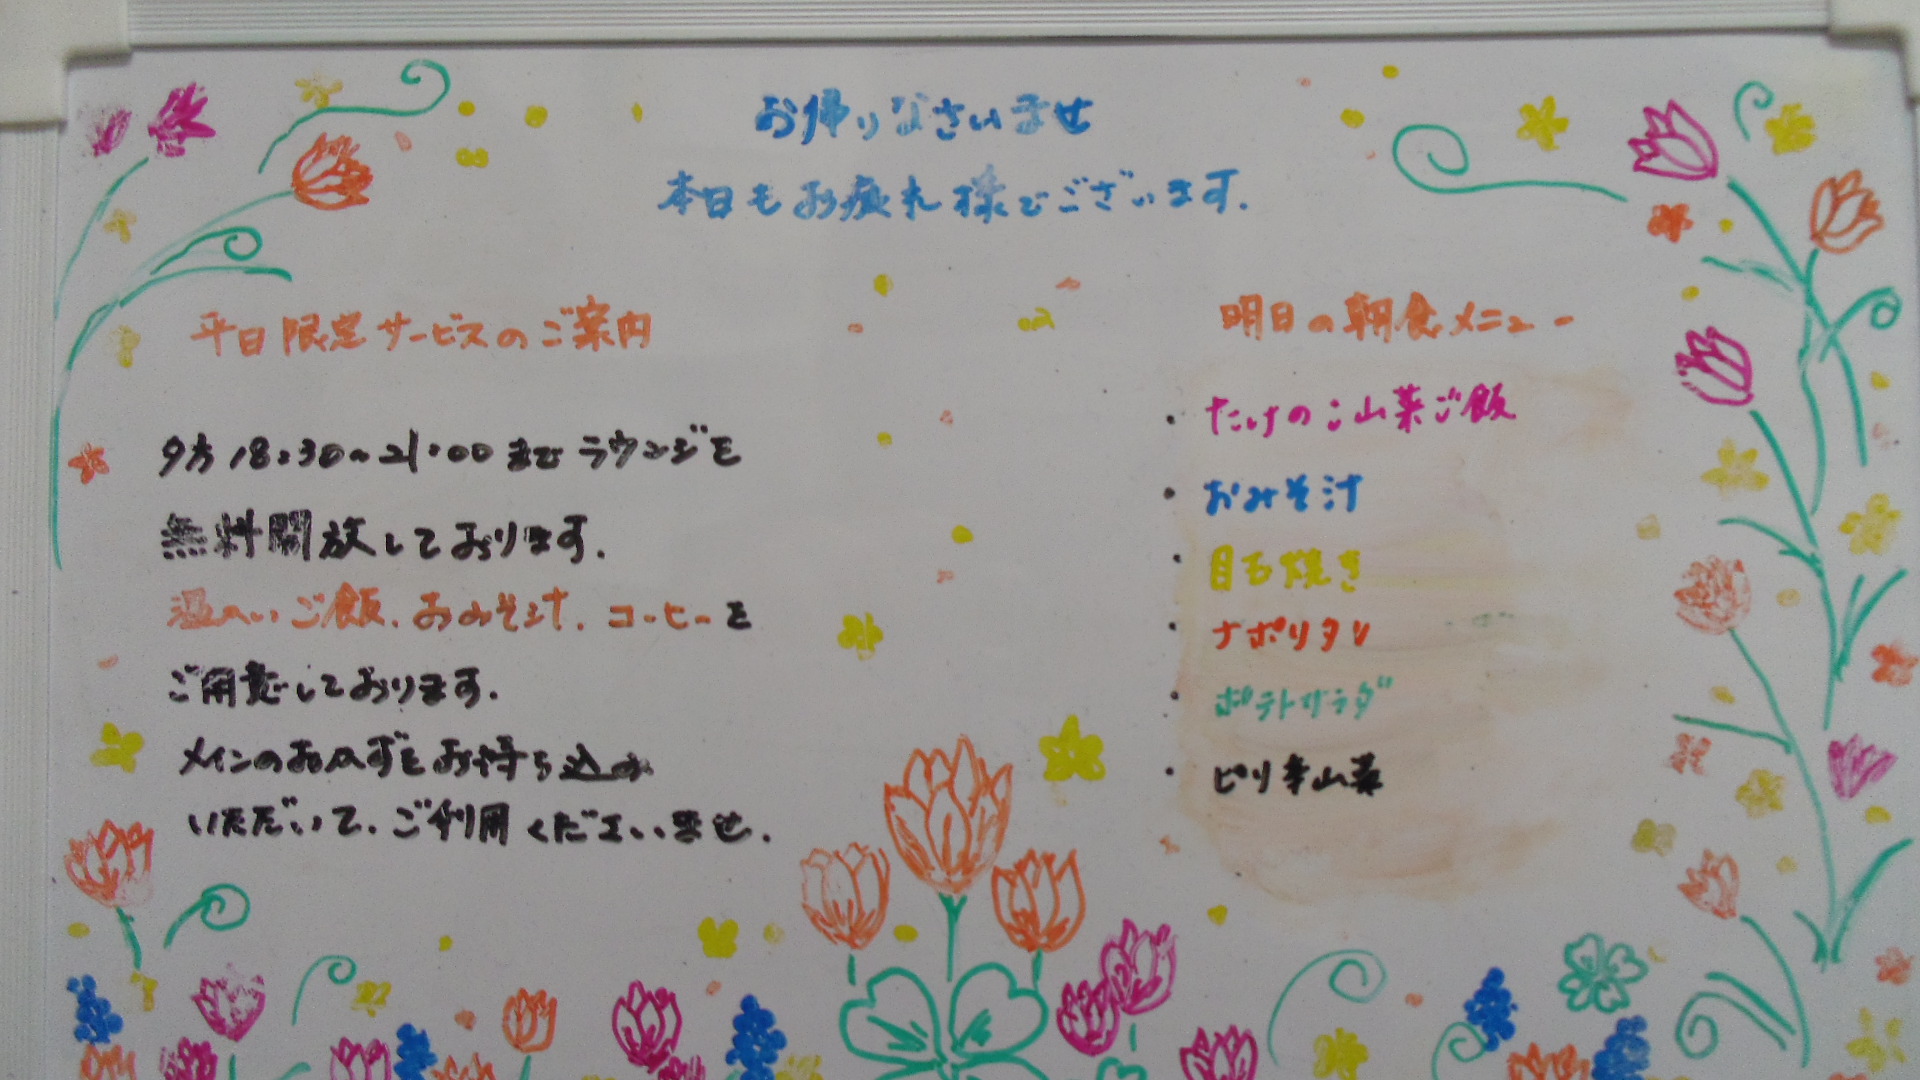 お帰りなさいませ
本日もお疲れ様でございます.
平日限定サービスのご案内
夕方18:30~21:00までラウンジを
無料開放しております.
温かいご飯.おみそ汁.コーヒーを
ご用意しております.
メインのおかずをお持ち込み
いただいて.ご利用くださいませ.
明日の朝食メニュー
・たけのこ山菜ご飯
・おみそ汁
・目玉焼き
・ナポリタン
・ポテトサラダ
・ピリ辛山菜